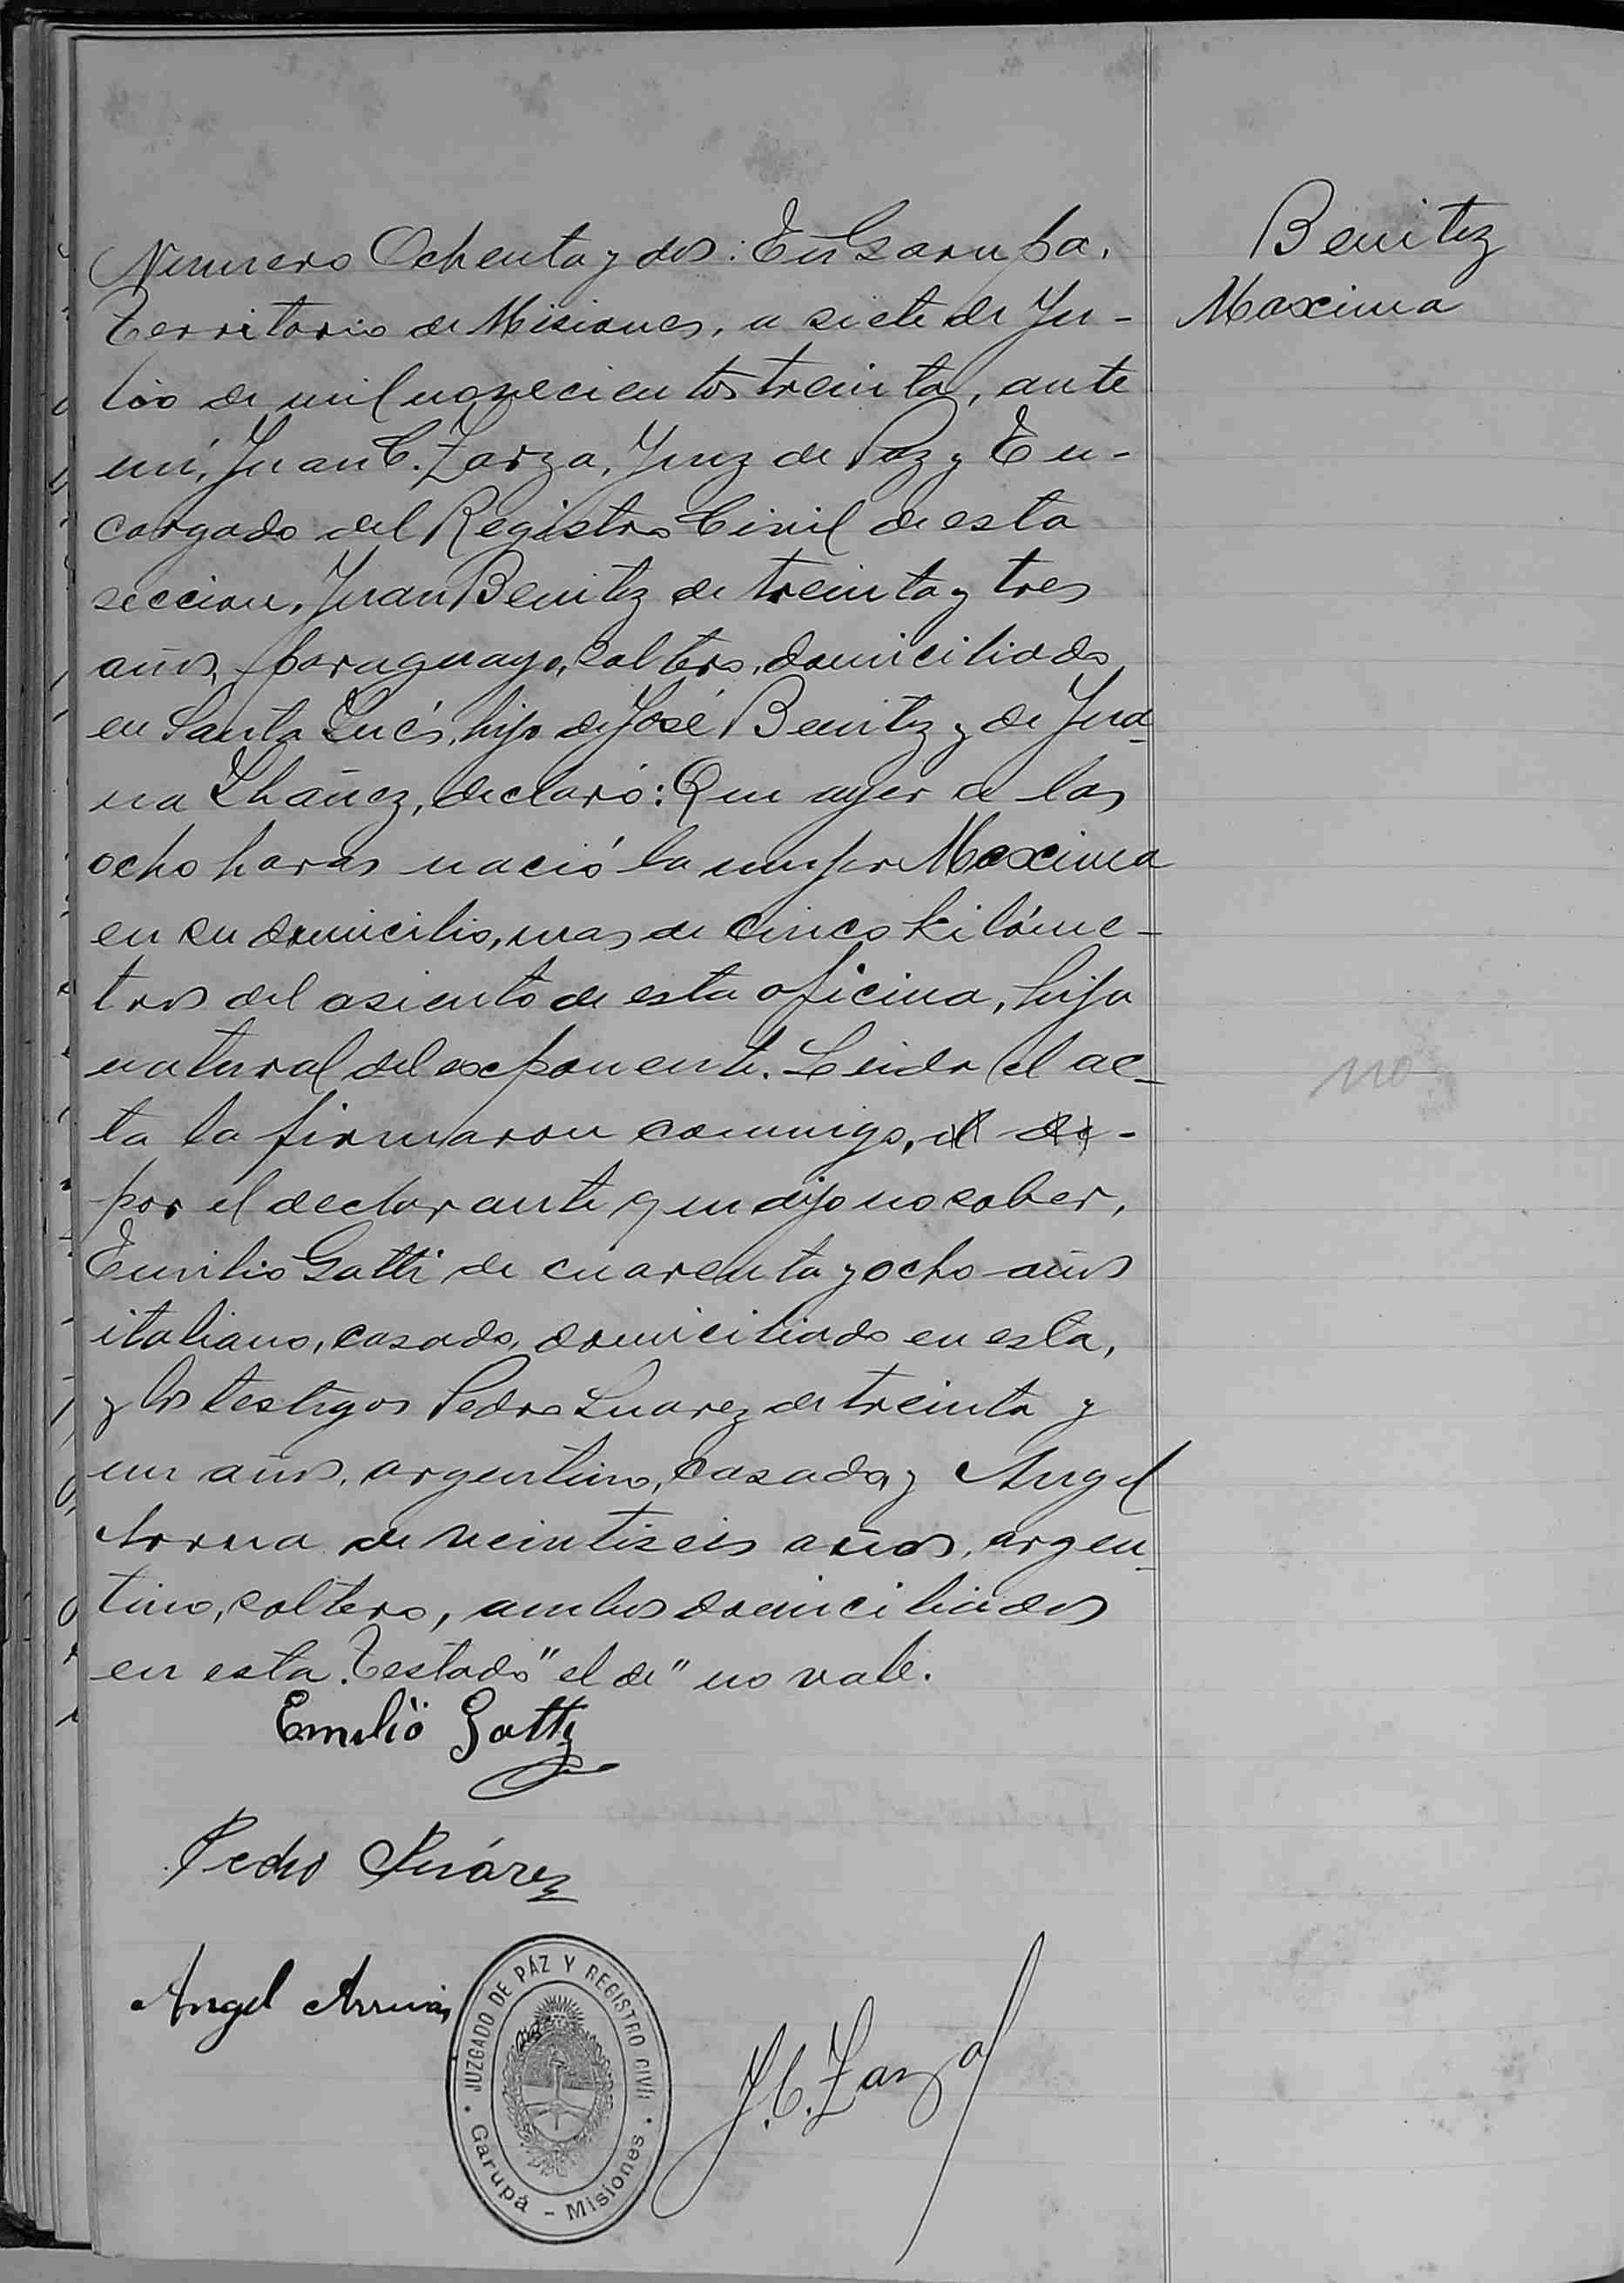 Benitez
Maxima
Numero Ochenta y dos: En Garupa,
Territorio de Misiones, a siete de Ju-
lio de mil novecientos treinta, ante
mi, Juan C. Zarza, Juez de Paz y En-
cargado del Registro Civil de esta
seccion, Juan Benitez de treinta y tres
años, paraguayo, soltero, domiciliado
en Santa Inés, hijo de José Benitez y de Jua-
na Ibáñez, declaró: Que ayer a las
ocho horas nació la mujer Maxima
en su domicilio, mas de cinco kilóme-
tros del asiento de esta oficina, hija
natural del exponente. Leida el ac-
ta la firmaron conmigo, el de-
por el declarante que dijo no saber,
Emilio Gatti de cuarenta y ocho años
italiano, casado, domiciliado en esta,
y los testigos Pedro Suarez de treinta y
un años, argentino, casado, y Angel
de veintiseis años, argen-
tino, soltero, ambos domiciliados
en esta. Testado "el de" no vale.
no
Emilio Gatti
Pedro Suárez
Angel
JUZGADO DE PAZ Y REGISTRO CIVIL
Garupá - Misiones
J. C. Zarza